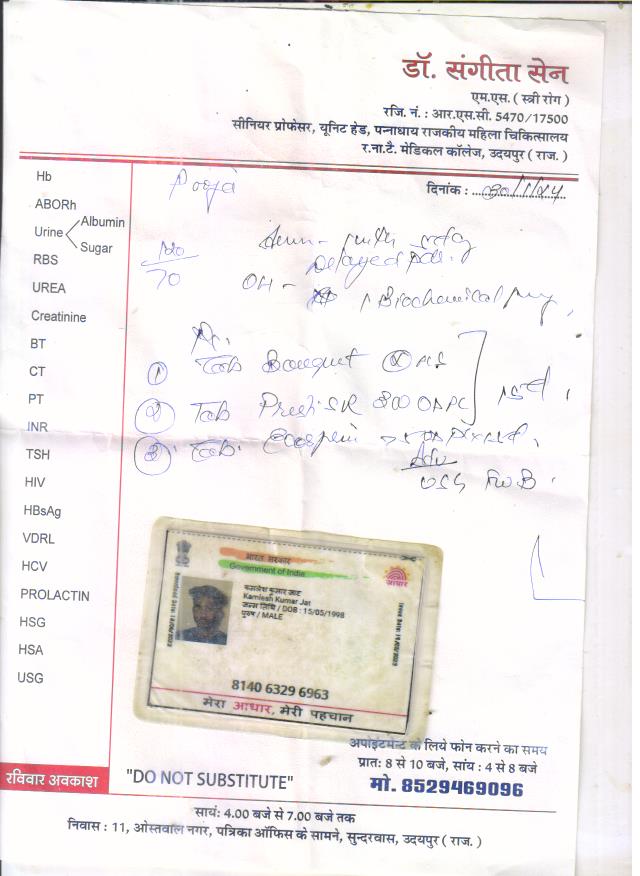 डॉ. संगीता सेन
एम.एस. ( स्त्री रोग )
रजि. नं. : आर.एस.सी. 5470/17500
सीनियर प्रोफेसर, यूनिट हेड, पन्नाधाय राजकीय महिला चिकित्सालय
र.ना.टै. मेडिकल कॉलेज, उदयपुर ( राज. )
दिनांक :
Pooja
Hb
ABORh
Urine Albumin
Sugar
RBS
UREA
Creatinine
BT
CT
PT
INR
TSH
HIV
HBsAg
VDRL
HCV
PROLACTIN
HSG
HSA
USG
70
Delayed
OH - Biochemical
① Tab
② Tab SR
③ Tab. Ecosprin
Adv
USG FWB
भारत सरकार
Government of India
कमलेश कुमार जाट
Kamlesh Kumar Jat
जन्म तिथि / DOB : 15/05/1998
पुरुष / MALE
आधार
8140 6329 6963
मेरा आधार, मेरी पहचान
अपोइंटमेन्ट के लिये फोन करने का समय
प्रात: 8 से 10 बजे, सांय : 4 से 8 बजे
मो. 8529469096
रविवार अवकाश
"DO NOT SUBSTITUTE"
सायं: 4.00 बजे से 7.00 बजे तक
निवास : 11, ओस्तवाल नगर, पत्रिका ऑफिस के सामने, सुन्दरवास, उदयपुर ( राज. )